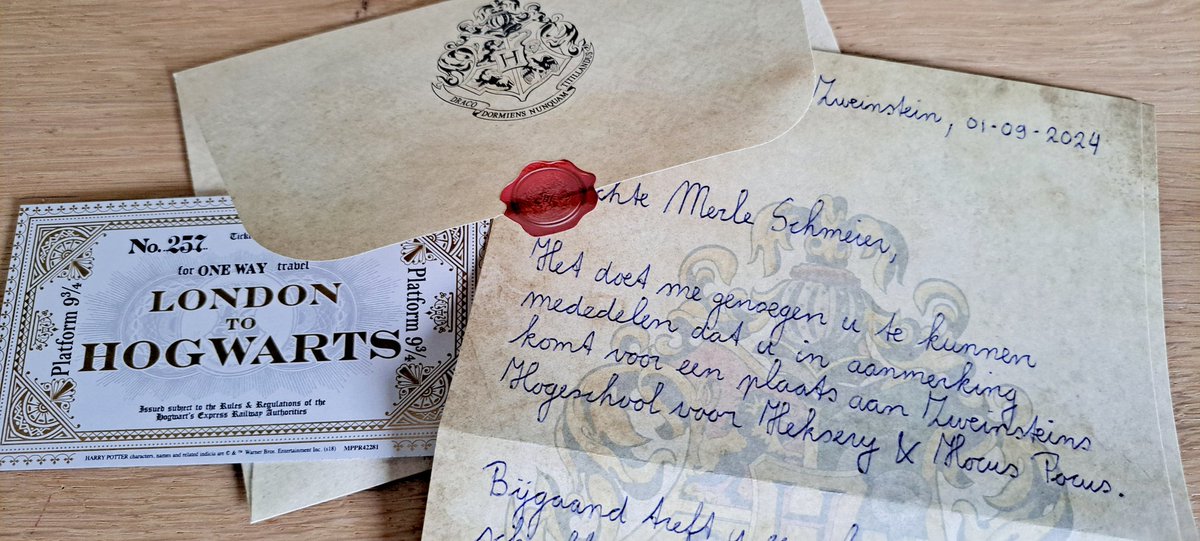 DRACO DORMIENS NUNQUAM TITILLANDUS
H
No. 257
for ONE WAY travel
LONDON
TO
HOGWARTS
Platform 9¾
Platform 9¾
Issued subject to the Rules & Regulations of the
Hogwart's Express Railway Authorities
HARRY POTTER characters, names and related indicia are © & ™ Warner Bros. Entertainment Inc. (s18) MPPR42281
Zweinstein, 01-09-2024
chte Merle Schmeier,
Het doet me genoegen u te kunnen
mededelen dat u in aanmerking
komt voor een plaats aan Zweinsteins
Hogeschool voor Heksery & Hocus Pocus.
Bijgaand treft u